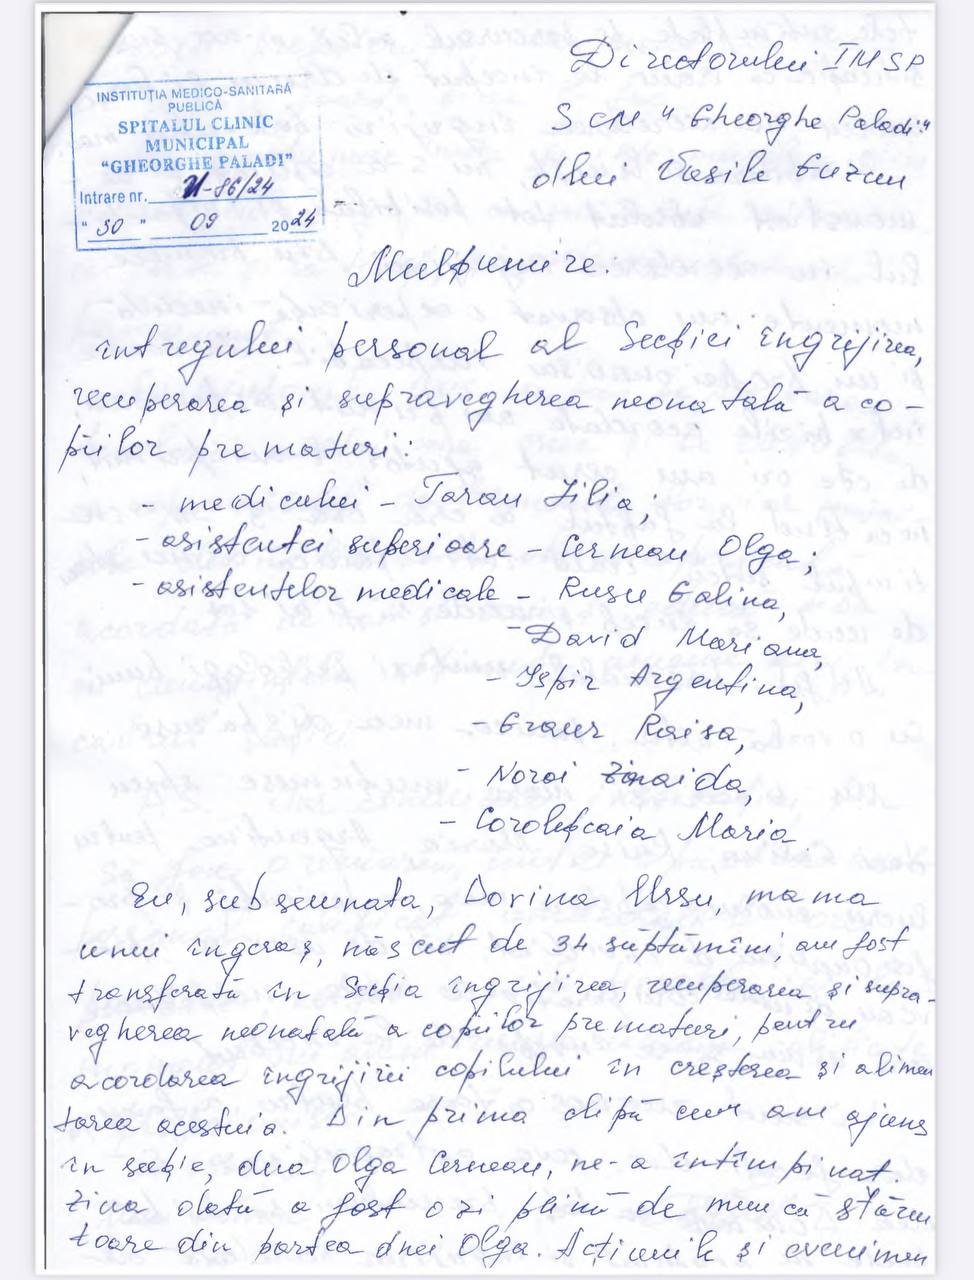 Directorului IMSP
SCM "Gheorghe Paladi"
dlui Vasile Guzun
INSTITUȚIA MEDICO-SANITARĂ
PUBLICĂ
SPITALUL CLINIC
MUNICIPAL
"GHEORGHE PALADI"
Intrare nr. -86/24
"30" 09 2024
Mulțumire.
întregului personal al Secției îngrijirea,
recuperarea și supravegherea neonatală a co-
piilor prematuri:
- medicului - Taran Lilia;
- asistentei superioare - Cernean Olga;
- asistentelor medicale - Rusu Galina,
- David Mariana,
- Ispir Argentina,
- Graur Raisa,
- Noroi Zinaida,
- Corolețcaia Maria
Eu, subsemnata, Dorina Ursu, mama
unui îngeraș, născut de 34 săptămîni, am fost
transferată în Secția îngrijirea, recuperarea și supra-
vegherea neonatală a copiilor prematuri, pentru
acordarea îngrijirii copilului în creșterea și alimen
tarea acestuia. Din prima clipă cum am ajuns
în secție, dna Olga Cernean, ne-a întîmpinat.
Ziua dată a fost o zi plină de muncă stăru
toare din partea dnei Olga. Acțiunile și evenimen